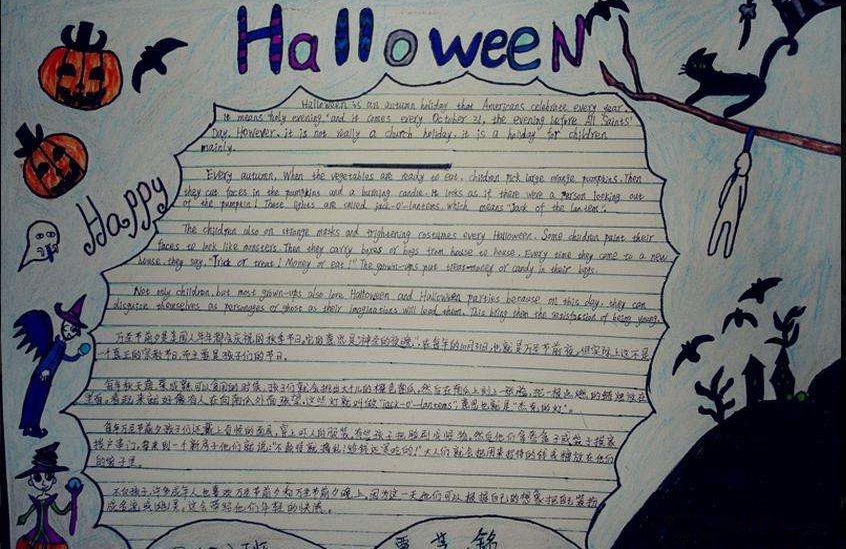 Halloween
Happy
Halloween is an autumn holiday that Americans celebrate every year.
It means "holy evening," and it comes every October 31, the evening before All Saints'
Day. However, it is not really a church holiday, it is a holiday for children
mainly.
Every autumn, When the vegetables are ready to eat, children pick large orange pumpkins. Then
they cut faces in the pumpkins and a burning candle. It looks as if there were a person looking out
of the pumpkin! These lights are called jack-o'-lanterns, which means "Jack of the lantern".
The children also on strange masks and frightening costumes every Halloween. Some children paint their
faces to look like monsters. Then they carry boxes or bags from house to house. Every time they come to a new
house, they say, "Trick or treat! Money or eat!" The grown-ups put treat-money or candy in their bags.
Not only children, but most grown-ups also love Halloween and Halloween parties because on this day, they can
disguise themselves as personages or ghost as their imaginations will lead them. This bring them the satisfaction of being young.
万圣节前夕是美国人年年都会庆祝的秋季节日。它的意思是"神圣的夜晚"，在每年的10月31日，也就是万圣节前夜。但实际上这不是
一个真正的宗教节日，而主要是孩子们的节日。
每年秋天蔬菜成熟可以食用的时候，孩子们就会挑出大个儿的橙色南瓜。然后在南瓜上刻上一张脸，把一根点燃的蜡烛放在
里面。看起来就好像有人在向南瓜外面张望。这些灯就叫做"jack-o'-lanterns"，意思也就是"杰克的灯"。
每年万圣节前夕孩子们还戴上奇怪的面具，穿上吓人的服装。有些孩子把脸刷成怪物。然后他们拿着盒子或袋子挨家
挨户串门。每来到一个新房子他们就说："不款待就捣乱！给钱还是吃的！"大人们就会把用来招待的钱或糖放在他们
的袋子里。
不仅孩子，许多成年人也喜欢万圣节前夕和万圣节前夕晚上，因为这一天他们可以根据自己的想象把自己装扮
成名流或幽灵。这会带给他们年轻的快感。